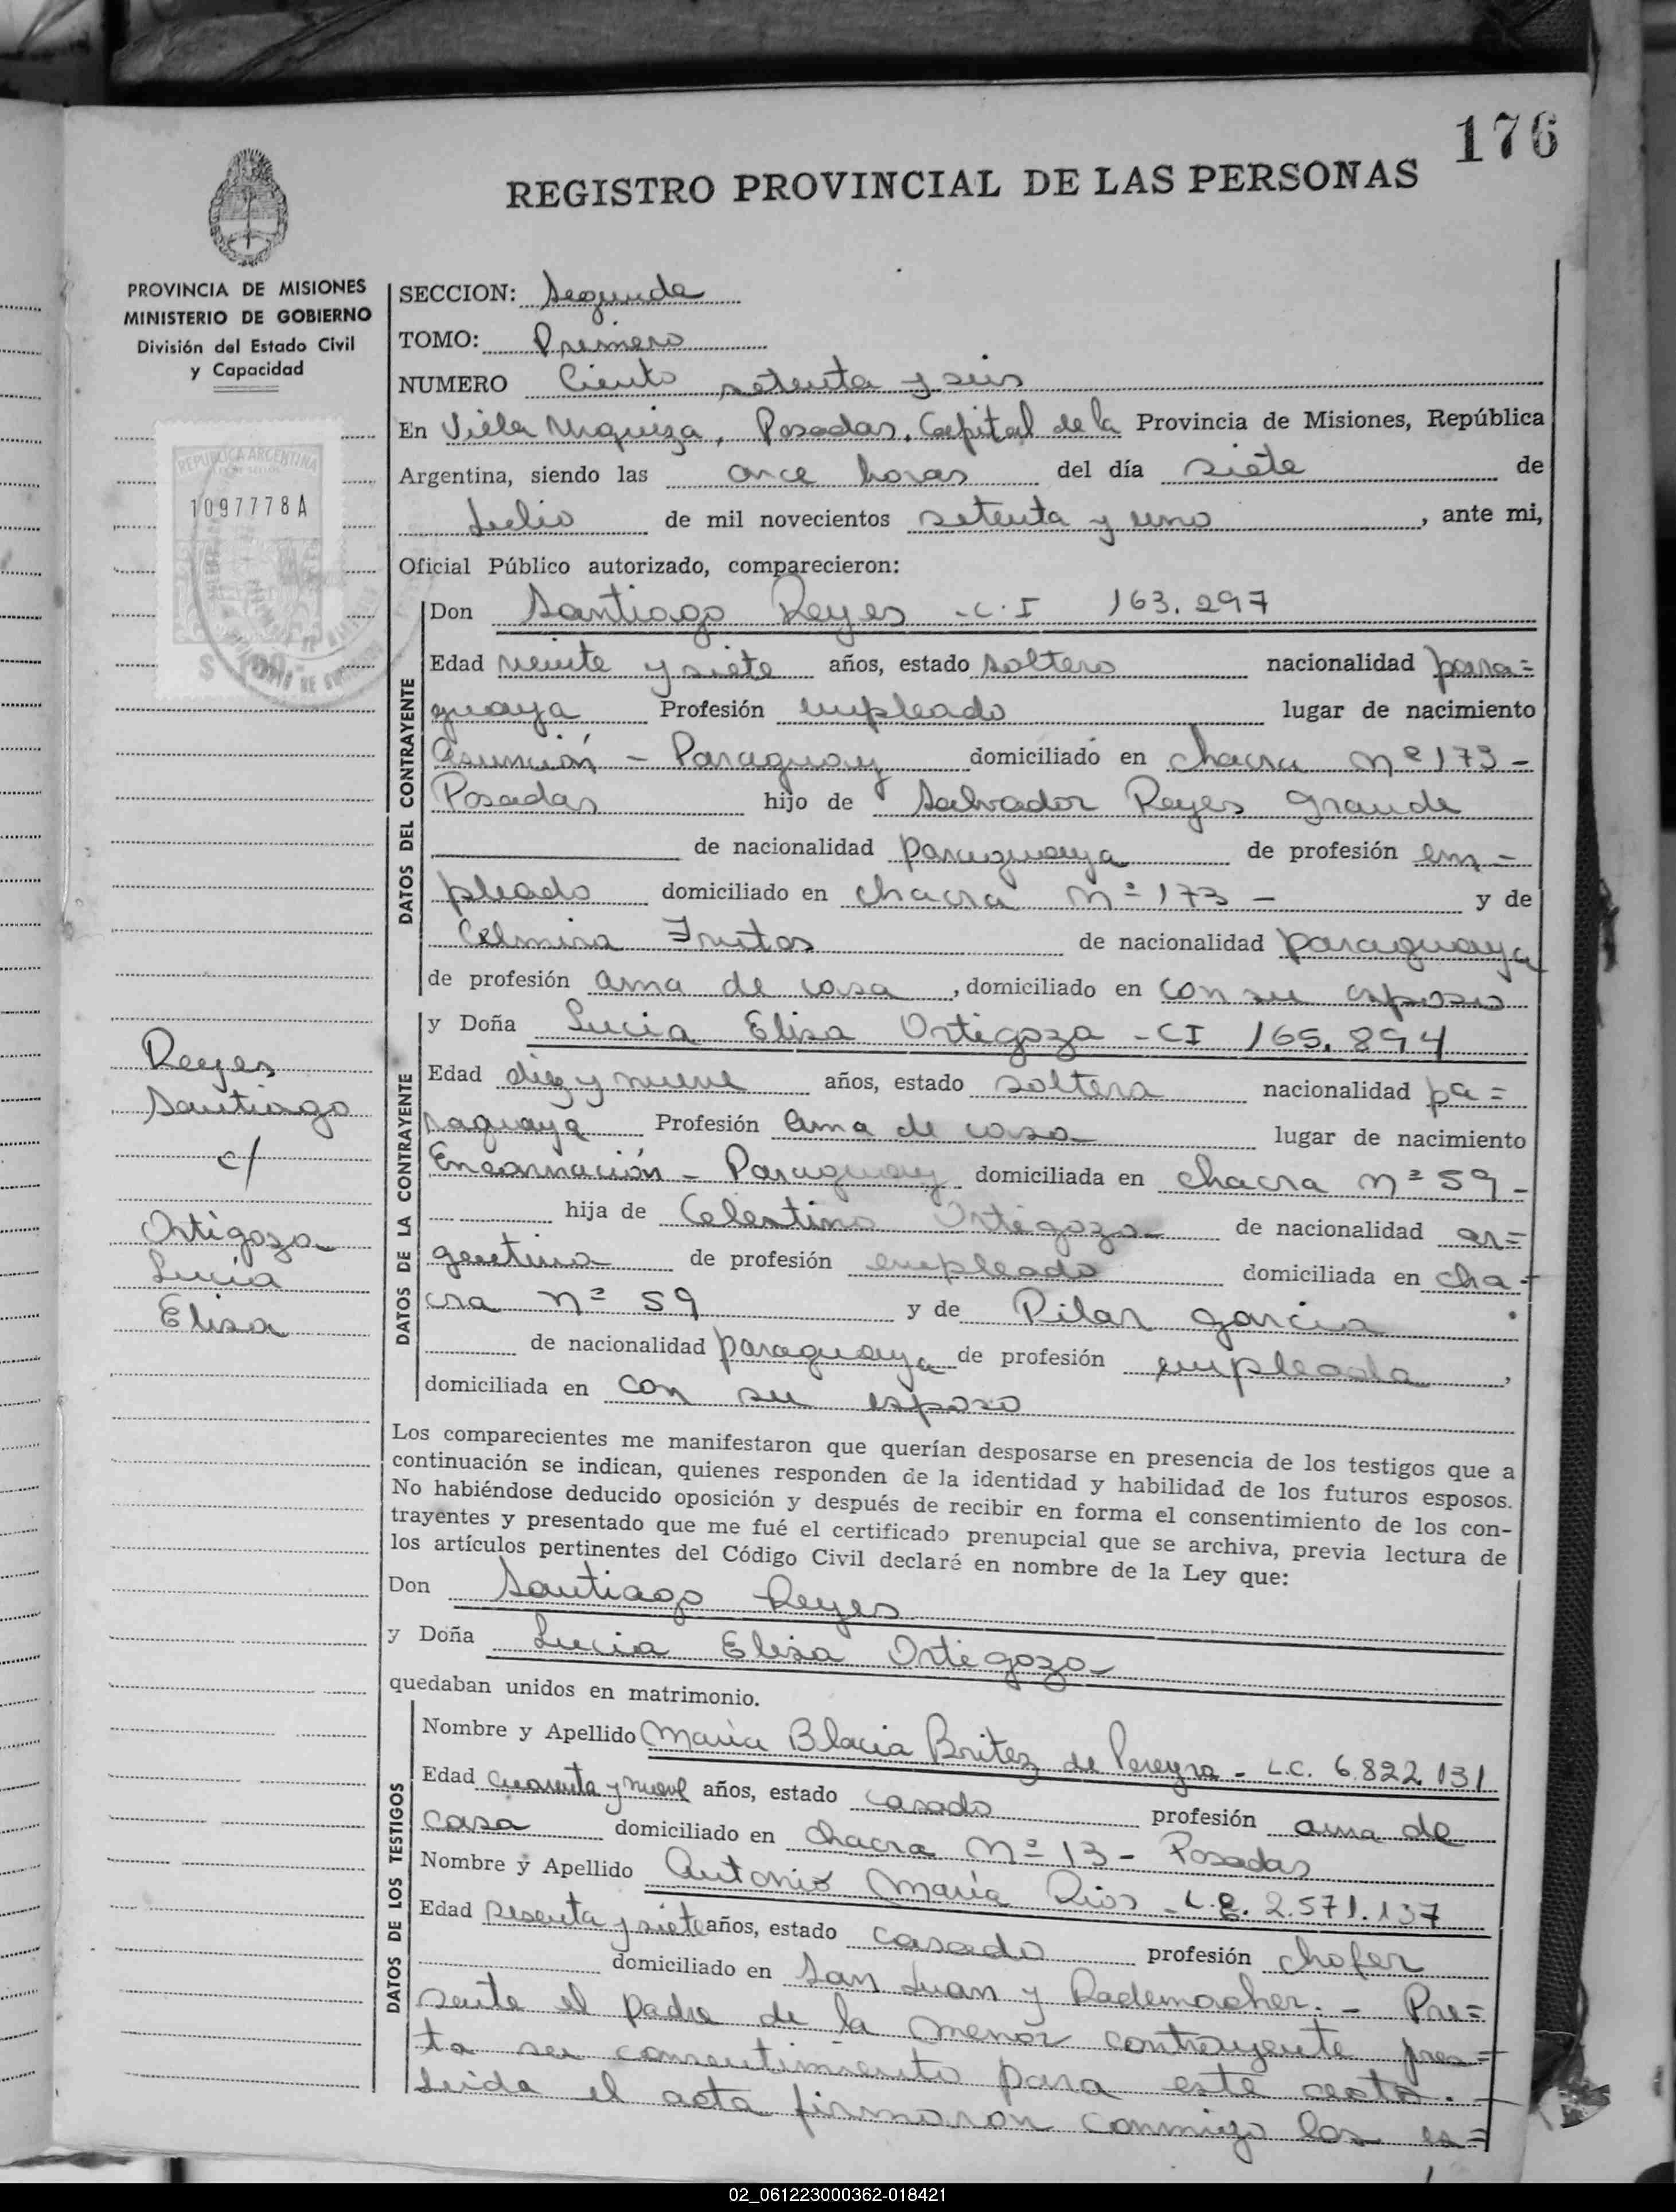 176
REGISTRO PROVINCIAL DE LAS PERSONAS
PROVINCIA DE MISIONES
MINISTERIO DE GOBIERNO
División del Estado Civil
y Capacidad
REPUBLICA ARGENTINA
1097778A
$ 100
Reyes
Santiago
c/
Ortigoza
Lucia
Elisa
SECCION: Segunda
TOMO: Primero
NUMERO Ciento setenta y seis
En Villa Urquiza, Posadas, Capital de la Provincia de Misiones, República
Argentina, siendo las once horas del día siete de
Julio de mil novecientos setenta y uno, ante mi,
Oficial Público autorizado, comparecieron:
DATOS DEL CONTRAYENTE
Don Santiago Reyes - C.I 163.297
Edad veinte y siete años, estado soltero nacionalidad para=
guaya Profesión empleado lugar de nacimiento
Asunción - Paraguay domiciliado en chacra nº 173 -
Posadas hijo de Salvador Reyes Grande
de nacionalidad paraguaya de profesión em=
pleado domiciliado en chacra nº 173 - y de
Celmira Frutos de nacionalidad paraguaya
de profesión ama de casa, domiciliado en con su esposo
DATOS DE LA CONTRAYENTE
y Doña Lucia Elisa Ortigoza - CI 165.894
Edad diez y nueve años, estado soltera nacionalidad pa=
raguaya Profesión ama de casa lugar de nacimiento
Encarnación - Paraguay domiciliada en chacra nº 59 -
hija de Celestino Ortigoza de nacionalidad ar=
gentina de profesión empleado domiciliada en cha-
cra nº 59 y de Pilar Garcia
de nacionalidad paraguaya de profesión empleada,
domiciliada en con su esposo
Los comparecientes me manifestaron que querían desposarse en presencia de los testigos que a
continuación se indican, quienes responden de la identidad y habilidad de los futuros esposos.
No habiéndose deducido oposición y después de recibir en forma el consentimiento de los con-
trayentes y presentado que me fué el certificado prenupcial que se archiva, previa lectura de
los artículos pertinentes del Código Civil declaré en nombre de la Ley que:
Don Santiago Reyes
y Doña Lucia Elisa Ortigoza
quedaban unidos en matrimonio.
DATOS DE LOS TESTIGOS
Nombre y Apellido María Blacia Britez de Pereyra - L.C. 6.822.131
Edad cuarenta y nueve años, estado casado profesión ama de
casa domiciliado en chacra Nº 13 - Posadas
Nombre y Apellido Antonio María Rios - L.E. 2.571.137
Edad sesenta y siete años, estado casado profesión chofer
domiciliado en San Juan y Rademacher. - Pre=
sente el padre de la menor contrayente pres=
ta su consentimiento para este acto. -
Leida el acta firmaron conmigo los es=
02_061223000362-018421